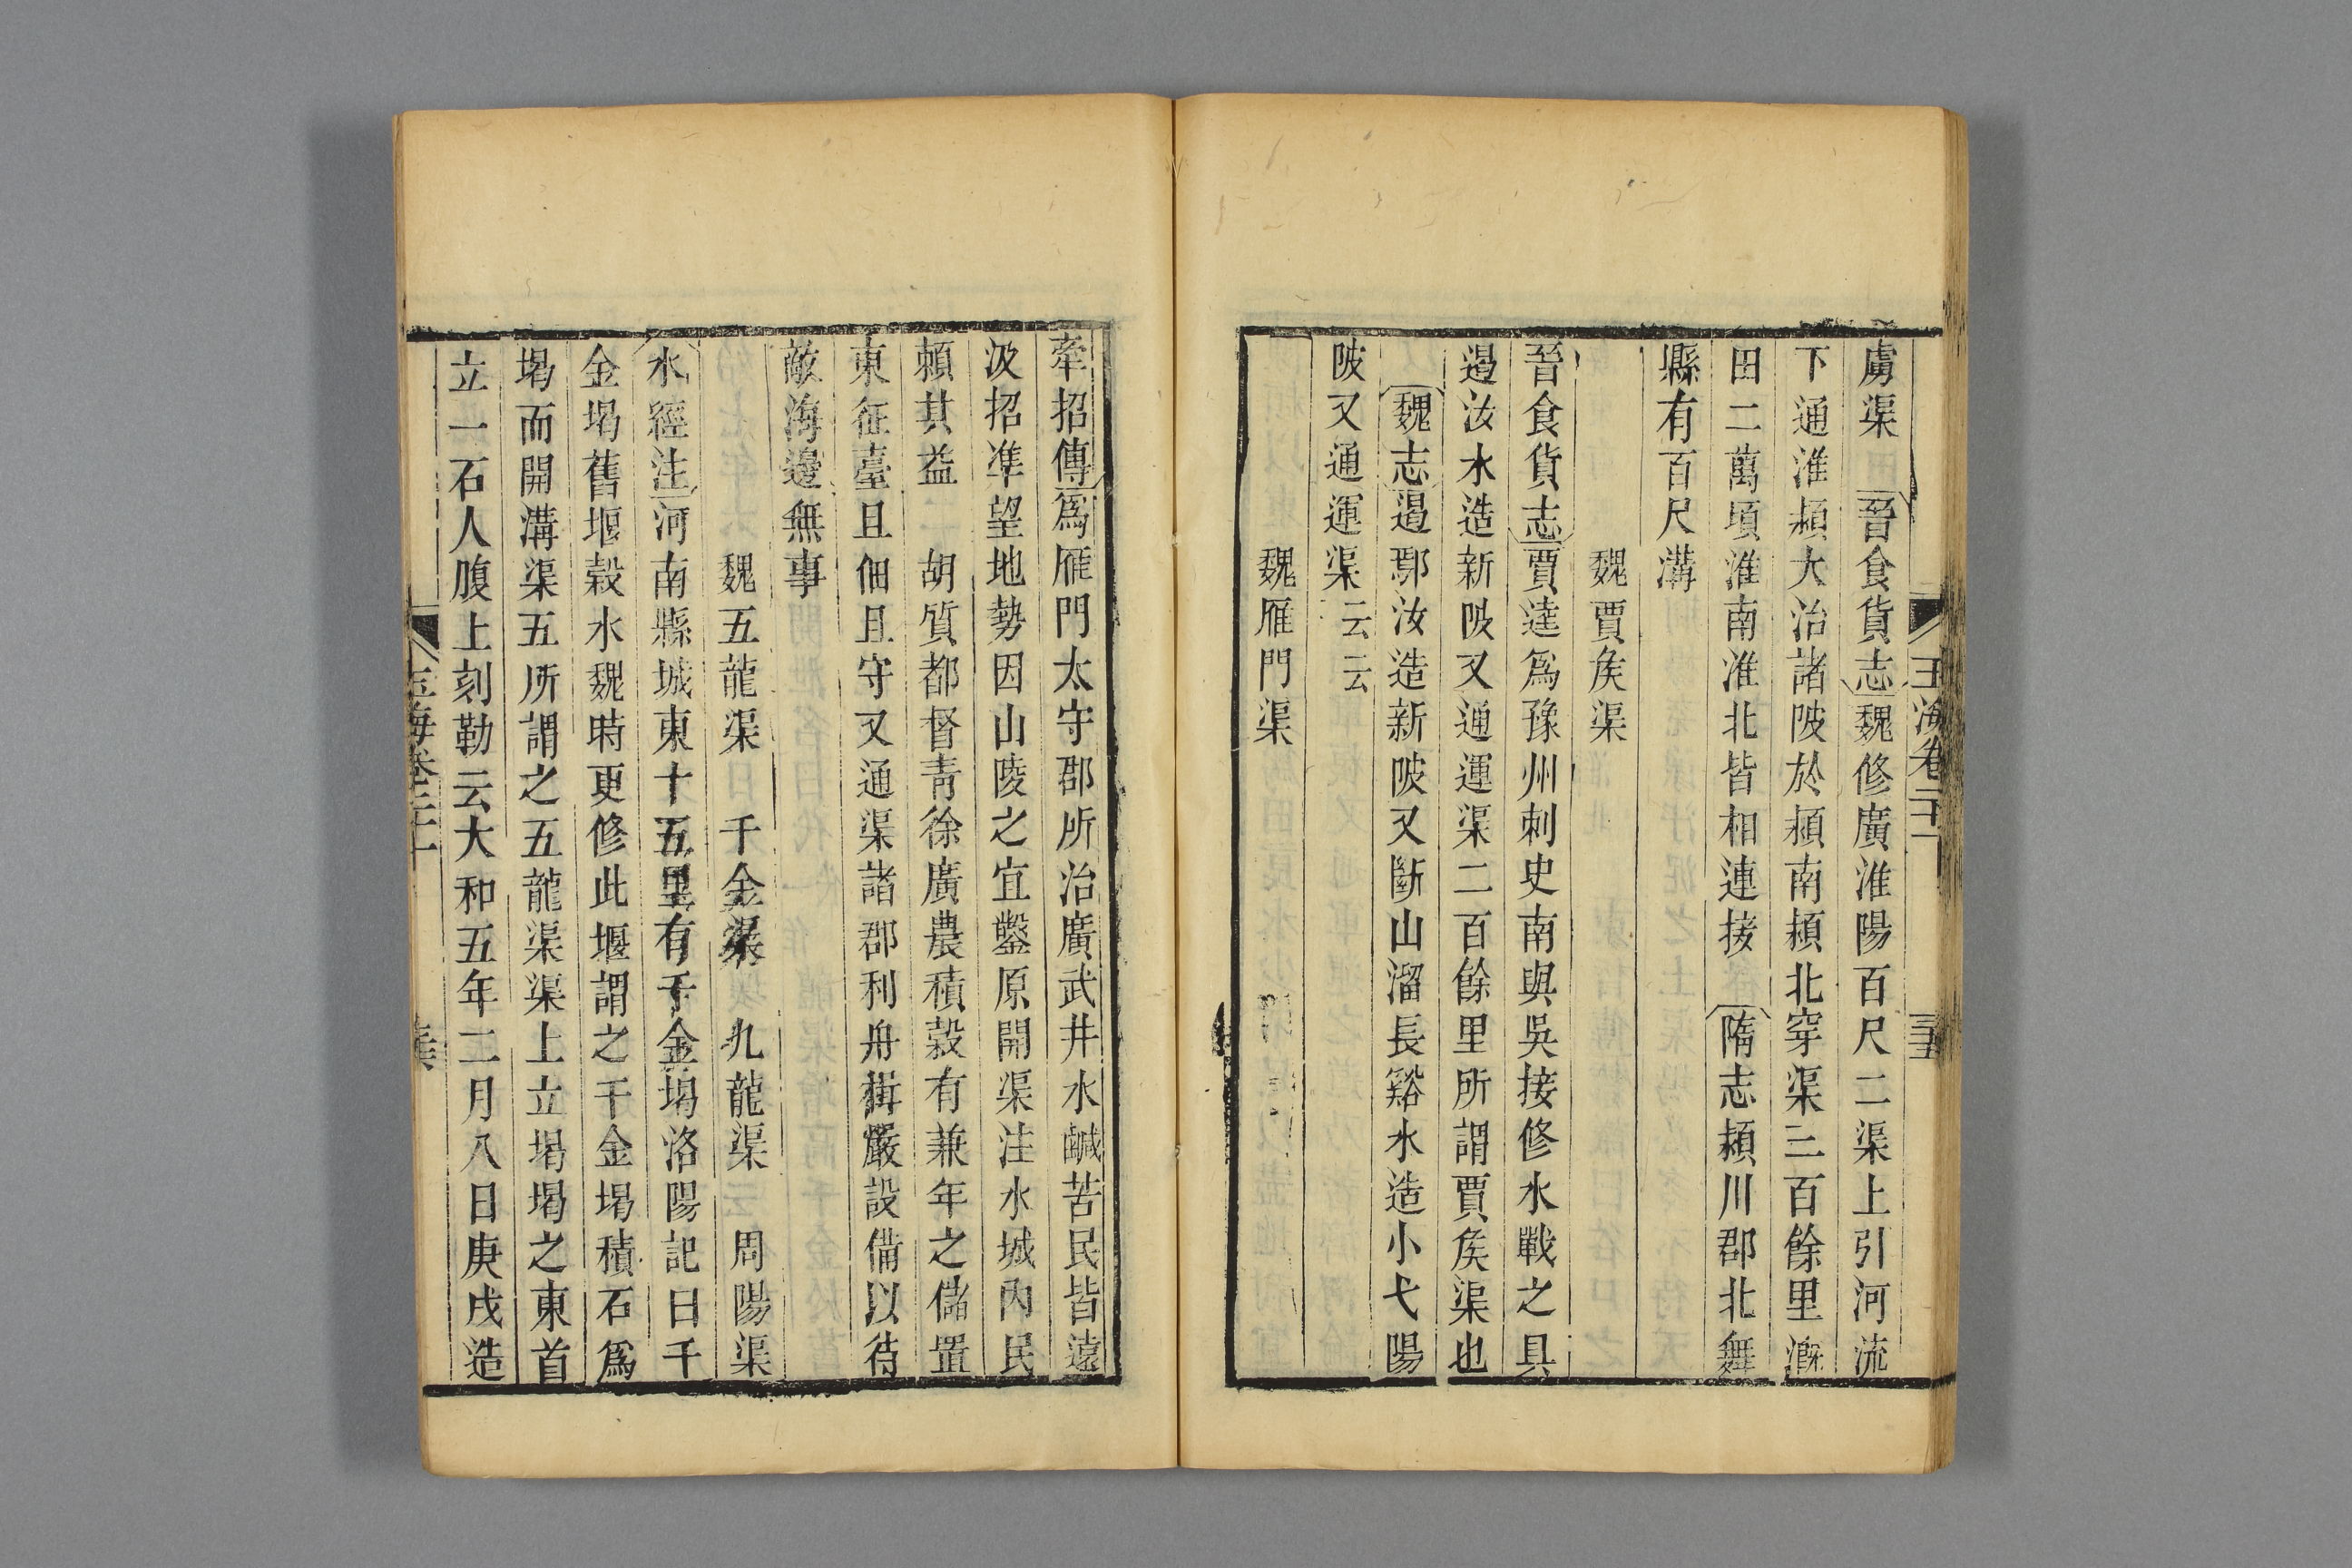 玉海卷二十一
三五
虜渠 晉食貨志魏修廣淮陽百尺二渠上引河流
下通淮潁大治諸陂於潁南潁北穿渠三百餘里溉
田二萬頃淮南淮北皆相連接 隋志潁川郡北舞
縣有百尺溝
魏賈矦渠
晉食貨志賈逵爲豫州刺史南與吳接修水戰之具
遏汝水造新陂又通運渠二百餘里所謂賈矦渠也
魏志遏鄢汝造新陂又斷山溜長谿水造小弋陽
陂又通運渠云云
魏雁門渠
牽招傳爲雁門太守郡所治廣武井水鹹苦民皆遠
汲招準望地勢因山陵之宜鑿原開渠注水城內民
賴其益 胡質都督青徐廣農積穀有兼年之儲置
東征臺且佃且守又通渠諸郡利舟楫嚴設備以待
敵海邊無事
魏五龍渠 千金渠 九龍渠 周陽渠
水經注河南縣城東十五里有千金堨洛陽記曰千
金堨舊堰穀水魏時更修此堰謂之千金堨積石爲
堨而開溝渠五所謂之五龍渠渠上立堨堨之東首
立一石人腹上刻勒云大和五年二月八日庚戌造
玉海卷二十一